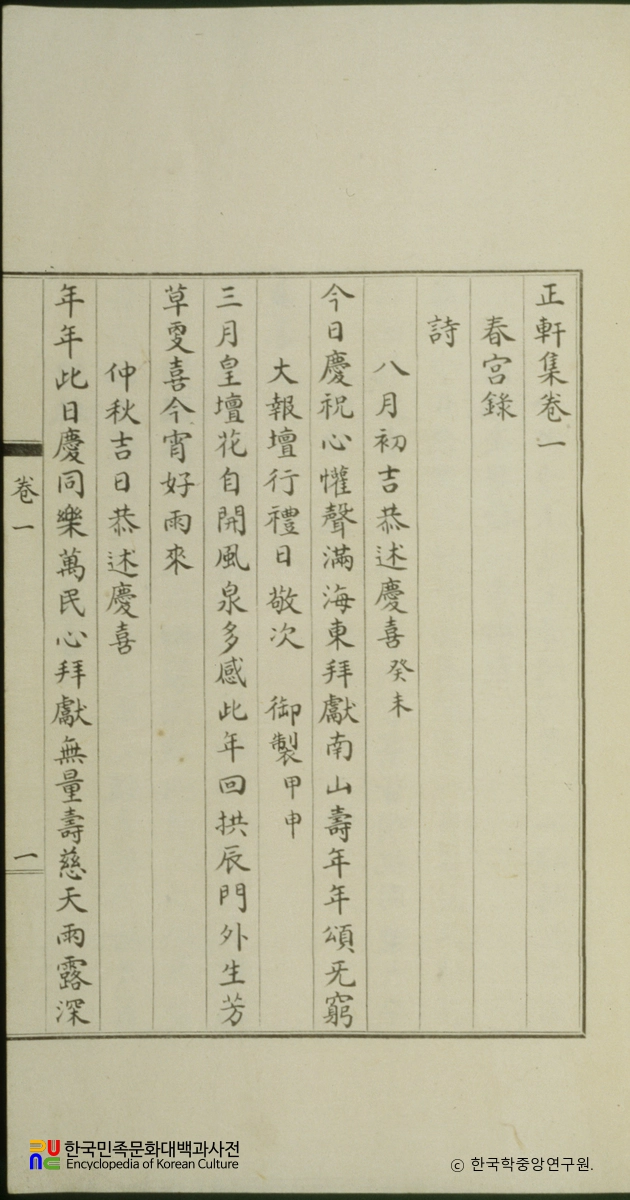 正軒集卷一
春宮錄
詩
八月初吉恭述慶喜 癸未
今日慶祝心懽聲滿海東拜獻南山壽年年頌旡窮
大報壇行禮日敬次 御製 甲申
三月皇壇花自開風泉多感此年回拱辰門外生芳
草更喜今宵好雨來
仲秋吉日恭述慶喜
年年此日慶同樂萬民心拜獻無量壽慈天雨露深
卷一
一
한국민족문화대백과사전
Encyclopedia of Korean Culture
ⓒ 한국학중앙연구원.